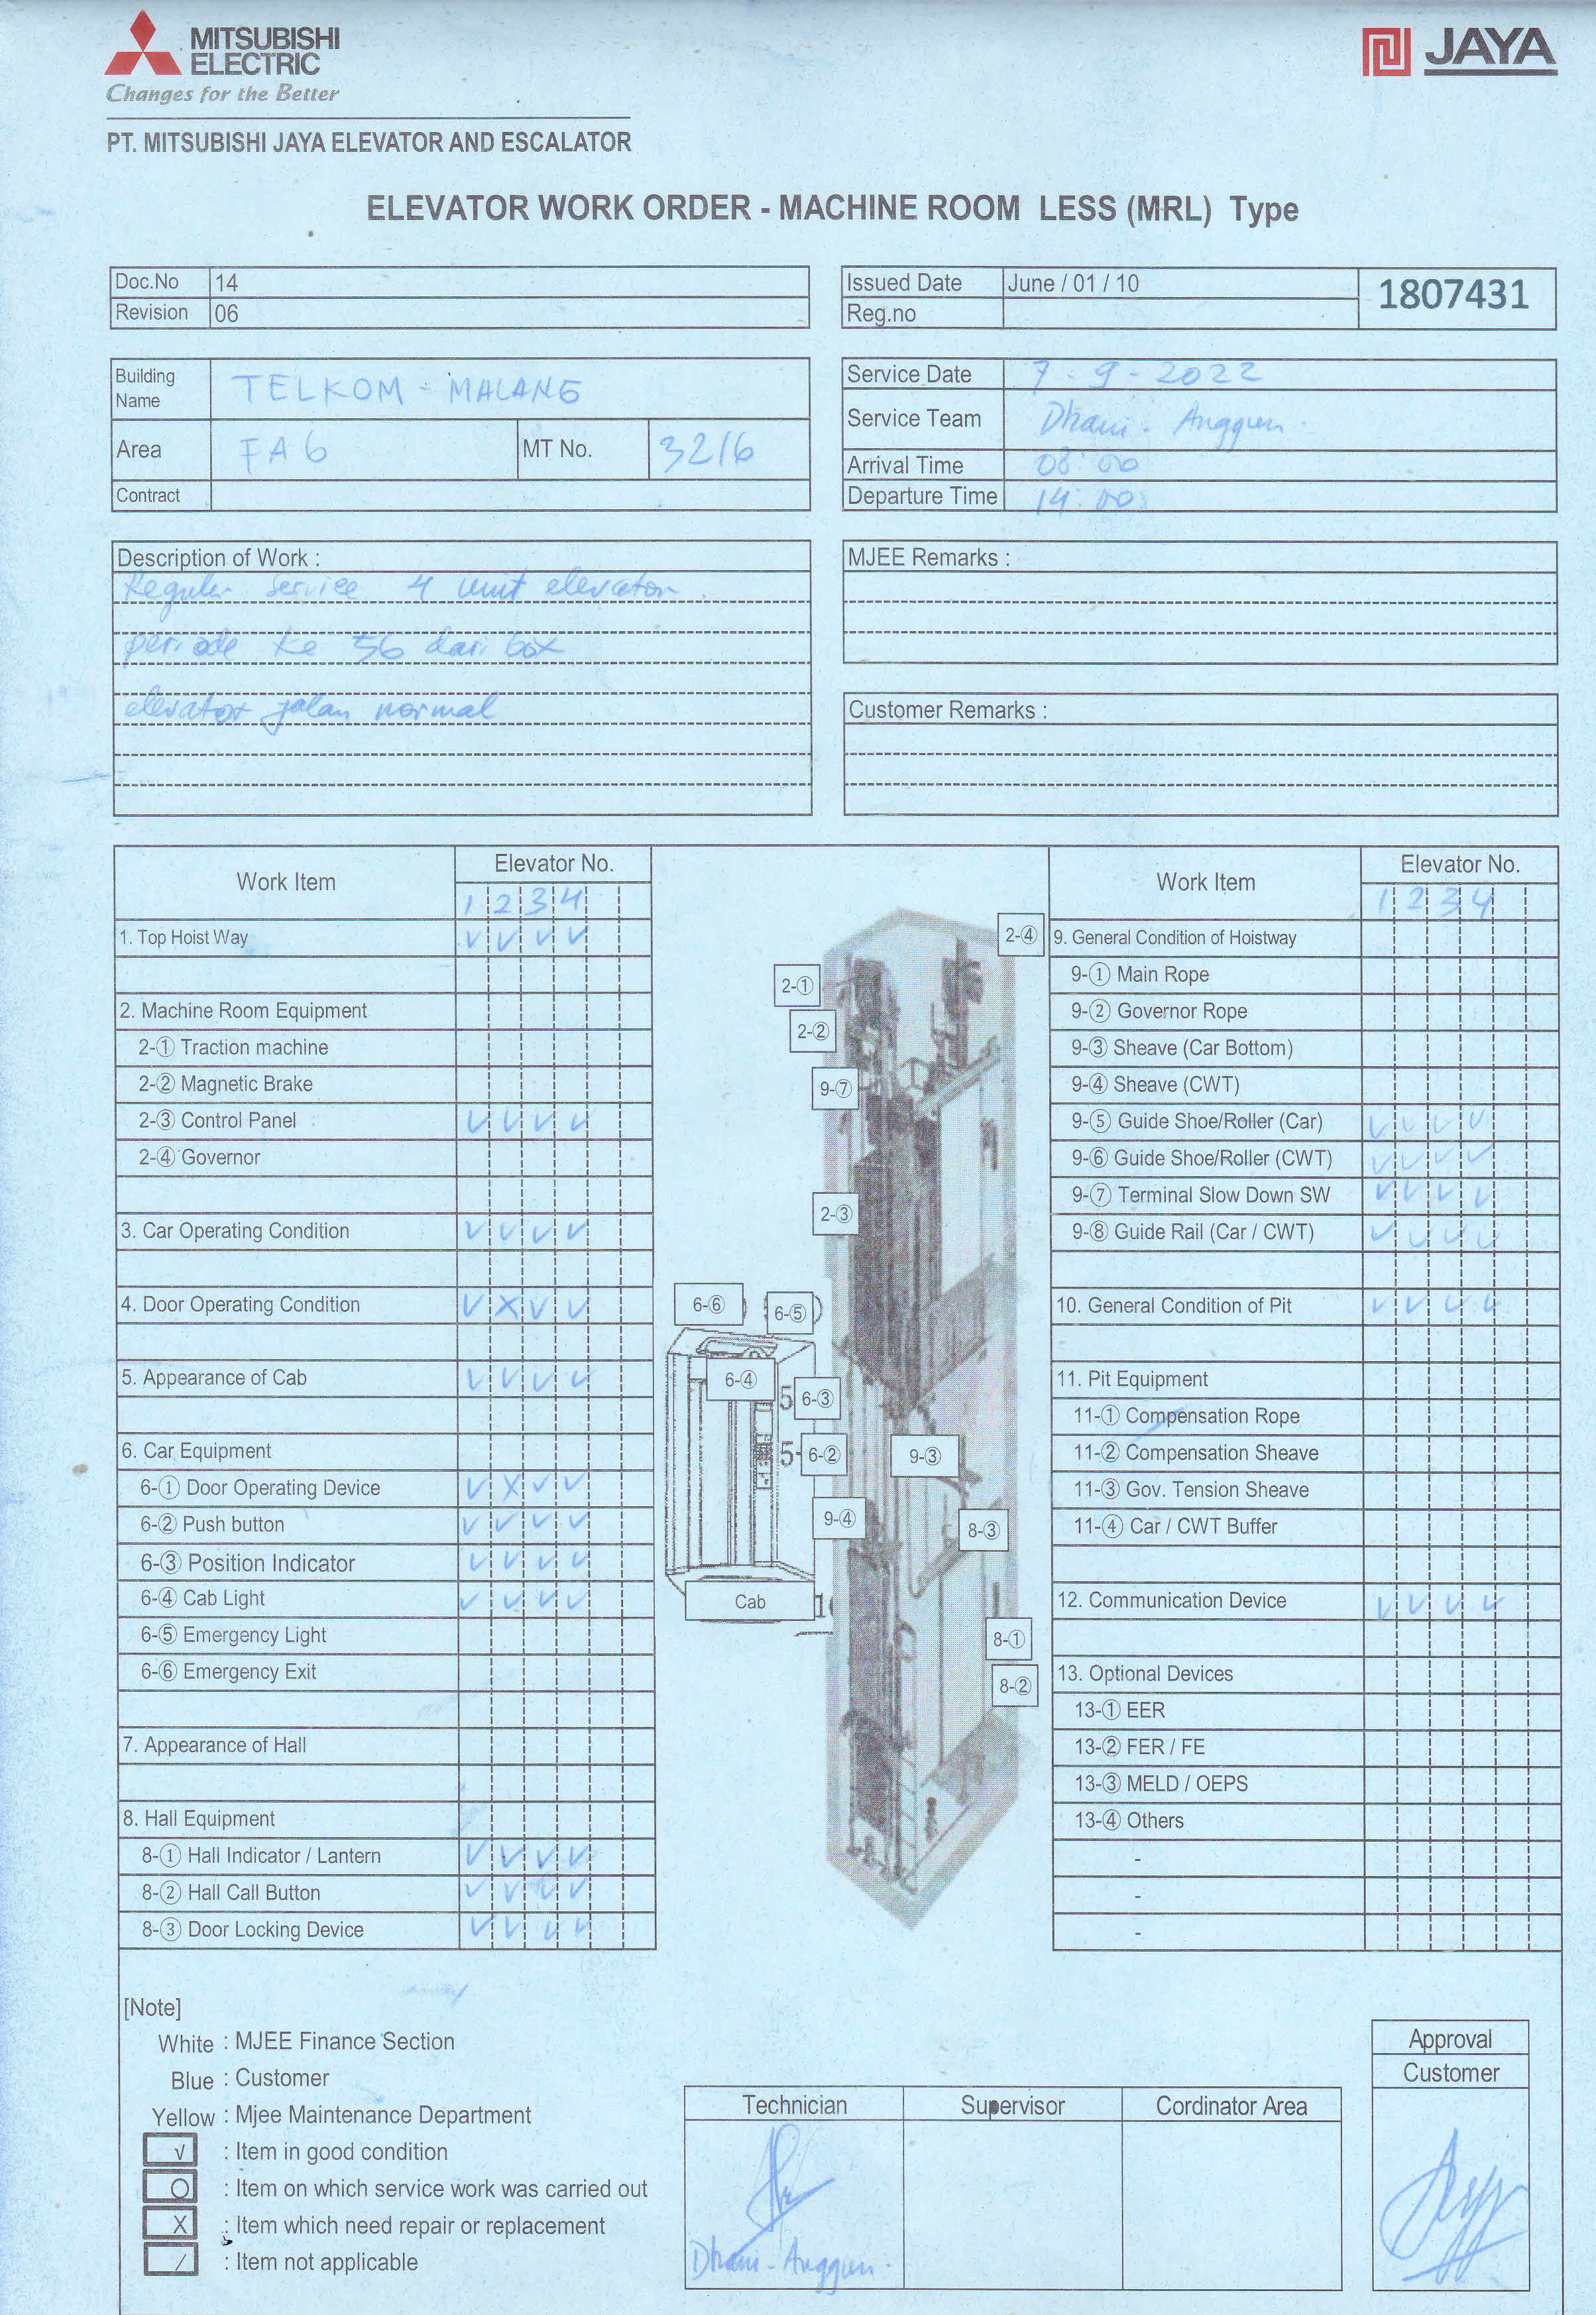 MITSUBISHI
ELECTRIC
Changes for the Better
JAYA
PT. MITSUBISHI JAYA ELEVATOR AND ESCALATOR
ELEVATOR WORK ORDER - MACHINE ROOM LESS (MRL) Type
Doc.No 14
Revision 06
Issued Date June / 01 / 10
Reg.no
1807431
Building Name TELKOM - MALANG
Area FA6 MT No. 3216
Contract
Service Date 7-9-2022
Service Team Dhani - Anggun.
Arrival Time 08:00
Departure Time 14:00
Description of Work :
Reguler service 4 unit elevator.
periode ke 56 dari box
elevator jalan normal
MJEE Remarks :
Customer Remarks :
Work Item Elevator No.
1 2 3 4
1. Top Hoist Way V V V V
2. Machine Room Equipment
2-① Traction machine
2-② Magnetic Brake
2-③ Control Panel V V V V
2-④ Governor
3. Car Operating Condition V V V V
4. Door Operating Condition V X V V
5. Appearance of Cab V V V V
6. Car Equipment
6-① Door Operating Device V X V V
6-② Push button V V V V
6-③ Position Indicator V V V V
6-④ Cab Light V V V V
6-⑤ Emergency Light
6-⑥ Emergency Exit
7. Appearance of Hall
8. Hall Equipment
8-① Hall Indicator / Lantern V V V V
8-② Hall Call Button V V V V
8-③ Door Locking Device V V V V
2-④
2-①
2-②
9-⑦
2-③
6-⑥
6-⑤
6-④
5
6-③
5-
6-②
9-③
9-④
8-③
Cab
8-①
8-②
Work Item Elevator No.
1 2 3 4
9. General Condition of Hoistway
9-① Main Rope
9-② Governor Rope
9-③ Sheave (Car Bottom)
9-④ Sheave (CWT)
9-⑤ Guide Shoe/Roller (Car) V V V V
9-⑥ Guide Shoe/Roller (CWT) V V V V
9-⑦ Terminal Slow Down SW V V V V
9-⑧ Guide Rail (Car / CWT) V V V V
10. General Condition of Pit V V V V
11. Pit Equipment
11-① Compensation Rope
11-② Compensation Sheave
11-③ Gov. Tension Sheave
11-④ Car / CWT Buffer
12. Communication Device V V V V
13. Optional Devices
13-① EER
13-② FER / FE
13-③ MELD / OEPS
13-④ Others
-
-
-
[Note]
White : MJEE Finance Section
Blue : Customer
Yellow : Mjee Maintenance Department
√ : Item in good condition
O : Item on which service work was carried out
X : Item which need repair or replacement
/ : Item not applicable
Technician Supervisor Cordinator Area
Dhani - Anggun.
Approval
Customer